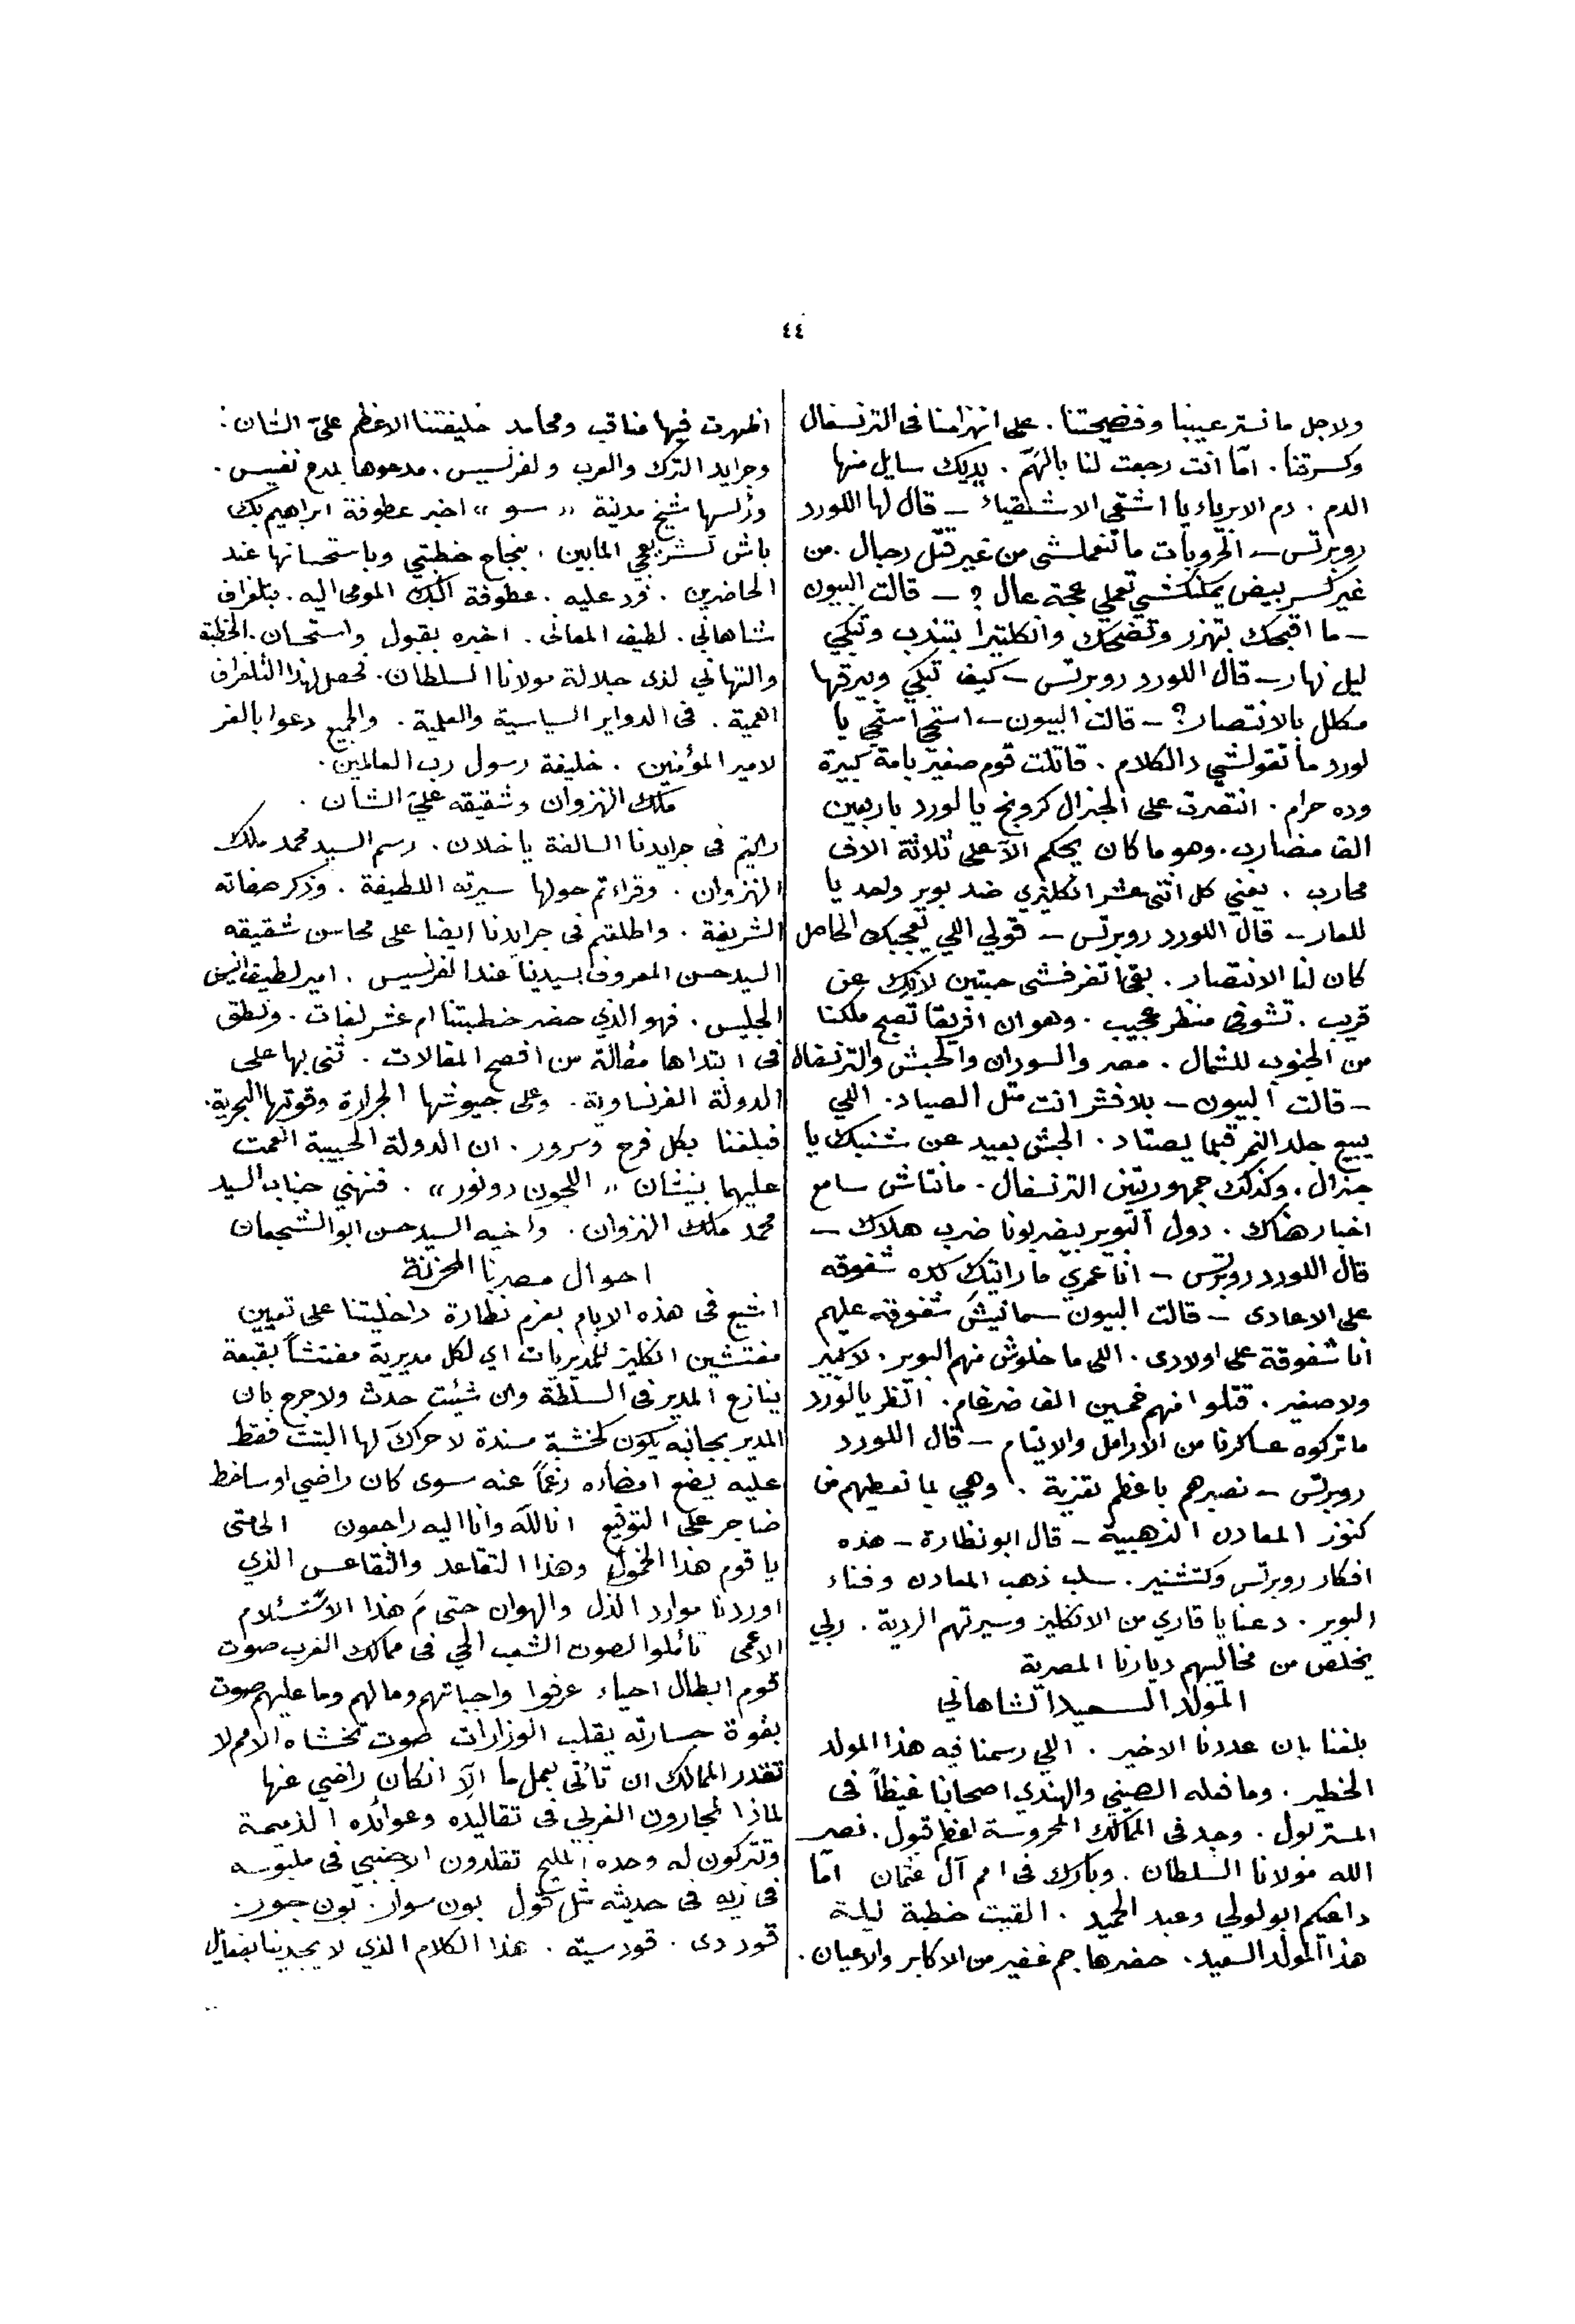 ٤٤
ولاجل ما نستر عيبنا وفضيحتنا . على انهزامنا فى الترنسفال
وكسرتنا . امّا انت رجعت لنا بالهمّ . يديك سايل منها
الدم . دم الابرياء يا اشقى الاشقياء – قال لها اللورد
روبرتس – الحروبات ما تنعملشى من غير قتل رجال . من
غير كسر بيض يمكنكشى تعملي عجة عال ؟ – قالت البيون
– ما اقبحك تهزر وتضحك وانكلتيرا بتندب وتبكي
ليل نهار – قال اللورد روبرتس – كيف تبكي وبيرقها
مكلل بالانتصار ؟ – قالت البيون – استحي استحي يا
لورد ما تقولشي دالكلام . قاتلت قوم صغير بامة كبيرة
وده حرام . انتصرت على الجنرال كرونج يا لورد باربعين
الف مضارب . وهو ما كان يحكم الآ على ثلاثة الاف
محارب . يعني كل اثنى عشر انكليزي ضد بوير واحد يا
للعار – قال اللورد روبرتس – قولي اللي يعجبك الحاصل
كان لنا الانتصار . بقى اتفرفشى حبتين لانك عن
قريب . تشوفى منظر عجيب . وهو ان افريقا تصبح ملكنا
من الجنوب للشمال . مصر والسودان والحبش والترنسفال
– قالت البيون – بلا فشر انت مثل الصياد . اللي
يبيع جلد النمر قبلما يصتاد . الحبش بعيد عن شنبك يا
جنرال . وكذلك جمهوريتين الترنسفال . مانتاش سامع
اخبار هناك . دول البوير بيضربونا ضرب هلاك –
قال اللورد روبرتس – انا عمري ما رايتك كده شفوقه
على الاعادى – قالت البيون – مانيش شفوقه عليهم
انا شفوقة على اولادى . اللى ما خلوش منهم البوير . لا كبير
ولا صغير . قتلوا منهم خمسين الف ضرغام . انظر يا لورد
ما تركوه عساكرنا من الارامل والايتام – قال اللورد
روبرتس – نصبرهم باعظم تعزية . وهي لما نعطيهم من
كنوز المعادن الذهبية – قال ابو نظارة – هذه
افكار روبرتس وكتشنير . سلب ذهب المعادن وفناء
البوير . دعنا يا قاري من الانكليز وسيرتهم الردية . ربي
يخلص من مخاليبهم ديارنا المصرية
المولد السعيد الشاهاني
بلغنا بان عددنا الاخير . اللي رسمنا فيه هذا المولد
الخطير . وما فعله الصيني والهندي اصحابنا غيظاً فى
المستر بول . وجد فى الممالك المحروسة اعظم قبول . نصر
الله مولانا السلطان . وبارك فى امم آل عثمان امّا
داعيكم ابو لولي وعبد الحميد . القيت خطبة ليلة
هذا المولد السعيد . حضرها جم غفير من الاكابر والاعيان .
اظهرت فيها مناقب ومحامد خليفتنا الاعظم علىّ الشان .
وجرايد الترك والعرب ولفرنسيس . مدعوها بمدح نفيس .
ورئسها شيخ مدينة « سو » اخبر عطوفة ابراهيم بك
باش تشريفجي المابين . بنجاح خطبتي وباستحسانها عند
الحاضرين . فرد عليه . عطوفة البك المومى اليه . بتلغراف
شاهاني . لطيف المعانى . اخبره بقبول واستحسان الخطبة
والتهاني لدى جلالة مولانا السلطان . فحصل لهذا التلغراف
اهمية . فى الدواير السياسية والعلمية . والجميع دعوا بالعز
لامير المؤمنين . خليفة رسول رب العالمين .
ملك النزوان وشقيقه علىّ الشان .
رايتم فى جرايدنا السالفة يا خلان . رسم السيد محمد ملك
النزوان . وقراءتم حولها سيرته اللطيفة . وذكر صفاته
الشريفة . واطلعتم فى جرايدنا ايضا على محاسن شقيقه
السيد حسن المعروف بسيدينا عند الفرنسيس . امير لطيف انيس
الجليس . فهو الذي حضر خطبتنا ام عشر لغات . ونطق
فى ابتداها مقالة من افصح المقالات . ثنى بها على
الدولة الفرنساوية . وعلى جيوشها الجرارة وقوتها البحرية .
فبلغنا بكل فرح وسرور . ان الدولة الحبيبة انعمت
عليهما بنيشان « اللجون دونور » . فنهني جناب السيد
محمد ملك النزوان . واخيه السيد حسن ابو الشجعان
احوال مصرنا المحزنة
اشيع فى هذه الايام بعزم نظارة داخليتنا على تعيين
مفتشين انكليز للمديريات اي لكل مديرية مفتشاً بقبعة
ينازع المدير فى السلطة وان شئت حدث ولا حرج بان
المدير بجانبه يكون كخشبة مسندة لا حراك لها البتت فقط
عليه يضع امضاءه رغماً عنه سوى كان راضي او ساخط
ضاجر على التوقيع انا لله وانا اليه راجعون الى متى
يا قوم هذا الخمول وهذا التقاعد والتقاعس الذي
اوردنا موارد الذل والهوان حتى مَ هذا الاستسلام
الاعمى تأملوا لصوت الشعب الحي فى ممالك الغرب صوت
قوم ابطال احياء عرفوا واجباتهم وما لهم وما عليهم صوت
بقوة جسارته يقلب الوزارات صوت تخشاه الامم لا
تقدر الممالك ان تأتى بعمل ما الآ انكان راضي عنها
لماذا تجارون الغربي فى تقاليده وعوائده الذميمة
وتتركون له وحده المليح تقلدون الاجنبي فى ملبوسه
فى زيه فى حديثه مثل قول بون سوار . بون جور .
قور دى . قور سيته . هذا الكلام الذي لا يجدينا بفعال